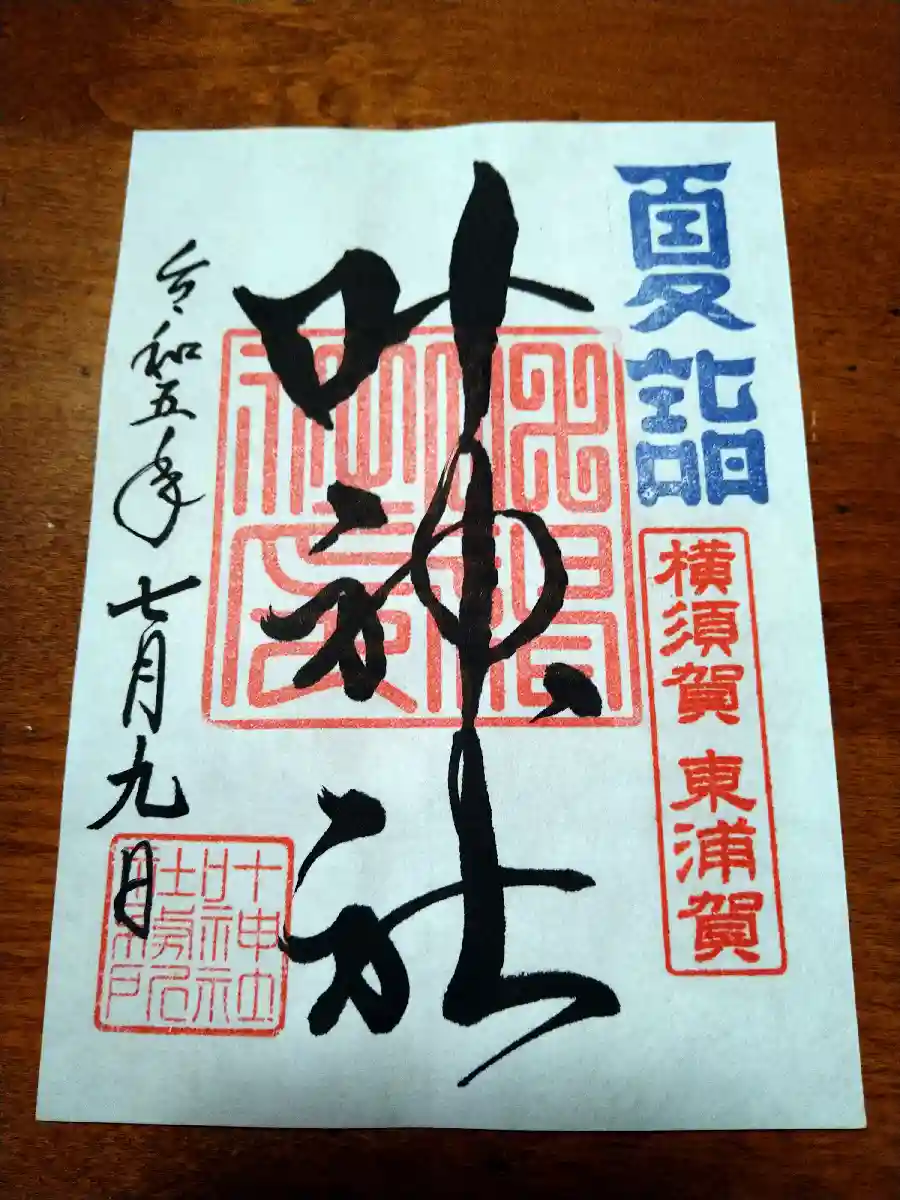 夏詣
横須賀 東浦賀
叶神社
令和五年七月九日
叶神社
社務所